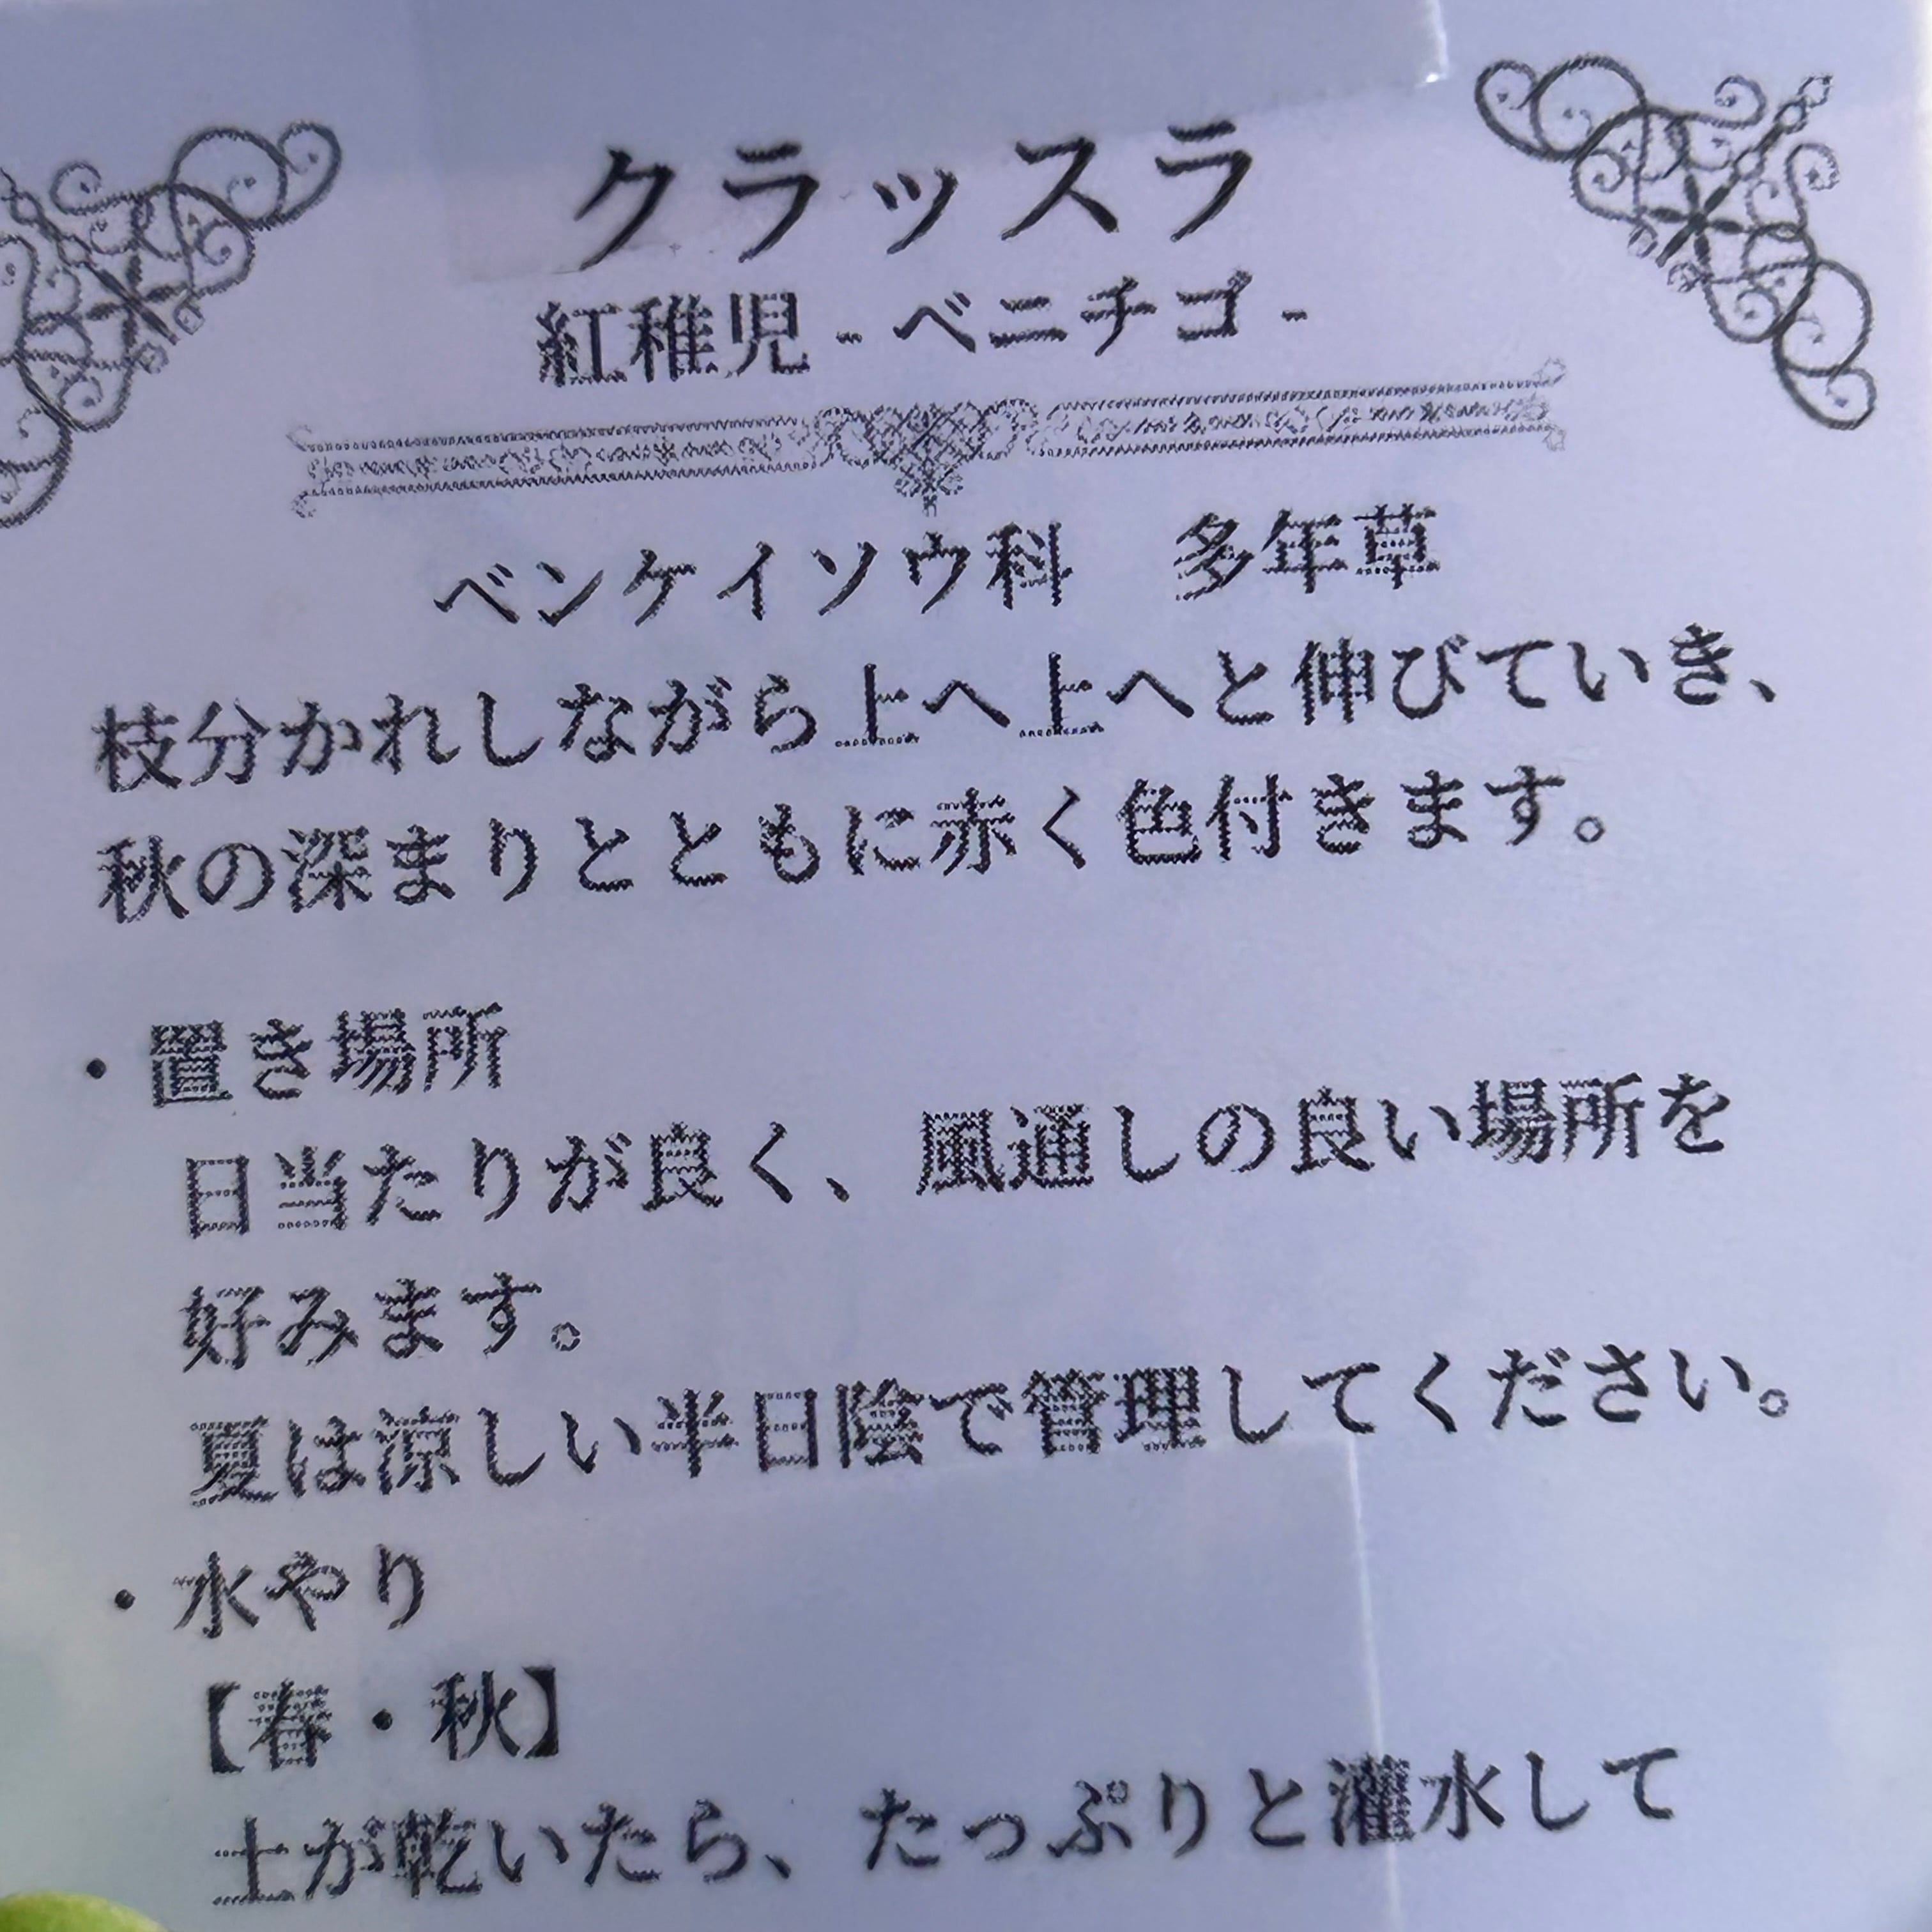 クラッスラ
紅稚児 - ベニチゴ -
ベンケイソウ科　多年草
枝分かれしながら上へ上へと伸びていき、
秋の深まりとともに赤く色付きます。
・置き場所
日当たりが良く、風通しの良い場所を
好みます。
夏は涼しい半日陰で管理してください。
・水やり
【春・秋】
土が乾いたら、たっぷりと灌水して